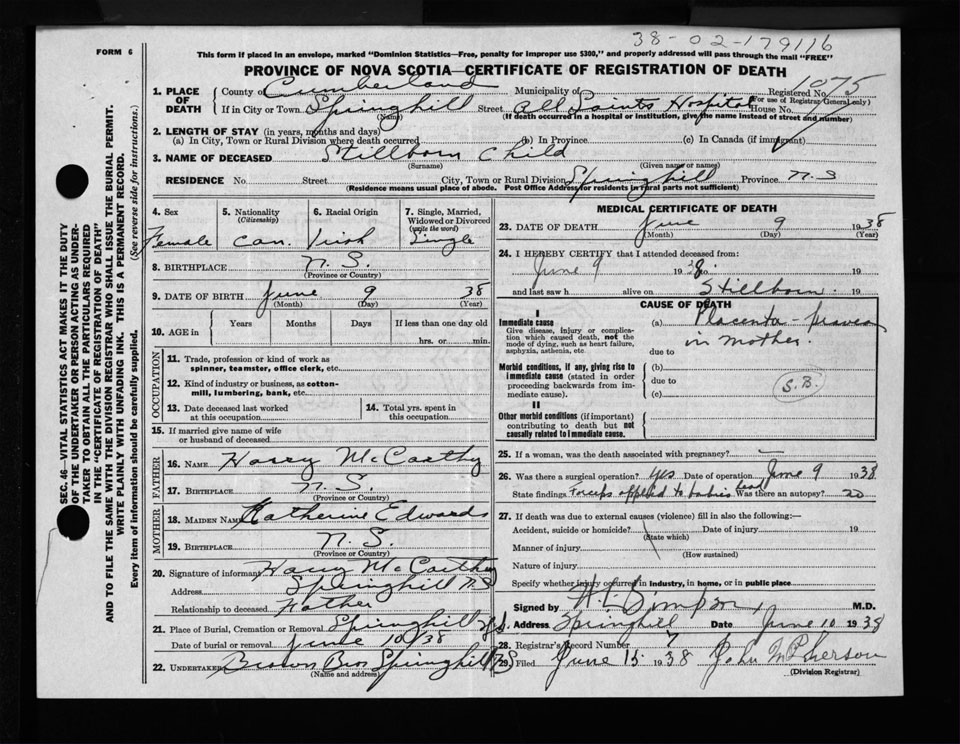 38-02-179116
FORM 6
This form if placed in an envelope, marked "Dominion Statistics—Free, penalty for improper use $300," and properly addressed will pass through the mail "FREE"
PROVINCE OF NOVA SCOTIA—CERTIFICATE OF REGISTRATION OF DEATH
1075
1. PLACE OF DEATH
County of Cumberland Municipality of Registered No.
(For use of Registrar General only)
If in City or Town Springhill Street All Saints Hospital House No.
(Name) (If death occurred in a hospital or institution, give the name instead of street and number)
2. LENGTH OF STAY (in years, months and days)
(a) In City, Town or Rural Division where death occurred (b) In Province (c) In Canada (if immigrant)
3. NAME OF DECEASED Stillborn Child
(Surname) (Given name or names)
RESIDENCE No. Street City, Town or Rural Division Springhill Province N.S
(Residence means usual place of abode. Post Office Address for residents in rural parts not sufficient)
4. Sex 5. Nationality 6. Racial Origin 7. Single, Married, Widowed or Divorced
(Citizenship) (write the word)
Female Can. Irish Single
8. BIRTHPLACE N. S.
(Province or Country)
9. DATE OF BIRTH June 9 38
(Month) (Day) (Year)
10. AGE in Years Months Days If less than one day old
hrs. or min.
OCCUPATION
11. Trade, profession or kind of work as
spinner, teamster, office clerk, etc.
12. Kind of industry or business, as cotton-
mill, lumbering, bank, etc.
13. Date deceased last worked
at this occupation
14. Total yrs. spent in
this occupation
15. If married give name of wife
or husband of deceased
FATHER
16. NAME Harry McCarthy
17. BIRTHPLACE N. S.
(Province or Country)
MOTHER
18. MAIDEN NAME Katherine Edwards
19. BIRTHPLACE N. S.
(Province or Country)
20. Signature of informant Harry McCarthy
Address Springhill NS
Relationship to deceased Father
21. Place of Burial, Cremation or Removal Springhill N.S.
Date of burial or removal June 10/38
22. UNDERTAKER Brown Bros. Springhill NS
(Name and address)
MEDICAL CERTIFICATE OF DEATH
23. DATE OF DEATH June 9 1938
(Month) (Day) (Year)
24. I HEREBY CERTIFY that I attended deceased from:
June 9 1938 to 19
and last saw h alive on Stillborn. 19
CAUSE OF DEATH
I
Immediate cause
Give disease, injury or complication which caused death, not the mode of dying, such as heart failure, asphyxia, asthenia, etc.
(a) Placenta-praevia
in mother.
due to
Morbid conditions, if any, giving rise to immediate cause (stated in order proceeding backwards from immediate cause).
(b)
due to
(c)
S.B.
II
Other morbid conditions (if important) contributing to death but not causally related to immediate cause.
25. If a woman, was the death associated with pregnancy? —
26. Was there a surgical operation? Yes Date of operation June 9 1938
State findings Forceps applied to babies head Was there an autopsy? no
27. If death was due to external causes (violence) fill in also the following:—
Accident, suicide or homicide? Date of injury 19
(State which)
Manner of injury
(How sustained)
Nature of injury
Specify whether injury occurred in industry, in home, or in public place
Signed by H.L. Simpson M.D.
Address Springhill Date June 10 1938
28. Registrar's Record Number 7
29. Filed June 15 1938 John McPherson
(Division Registrar)
SEC. 46—VITAL STATISTICS ACT MAKES IT THE DUTY
OF THE UNDERTAKER OR PERSON ACTING AS UNDER-
TAKER TO OBTAIN ALL THE PARTICULARS REQUIRED
IN THE "CERTIFICATE OF REGISTRATION OF DEATH"
AND TO FILE THE SAME WITH THE DIVISION REGISTRAR WHO SHALL ISSUE THE BURIAL PERMIT.
WRITE PLAINLY WITH UNFADING INK. THIS IS A PERMANENT RECORD.
Every item of information should be carefully supplied. (See reverse side for instructions.)